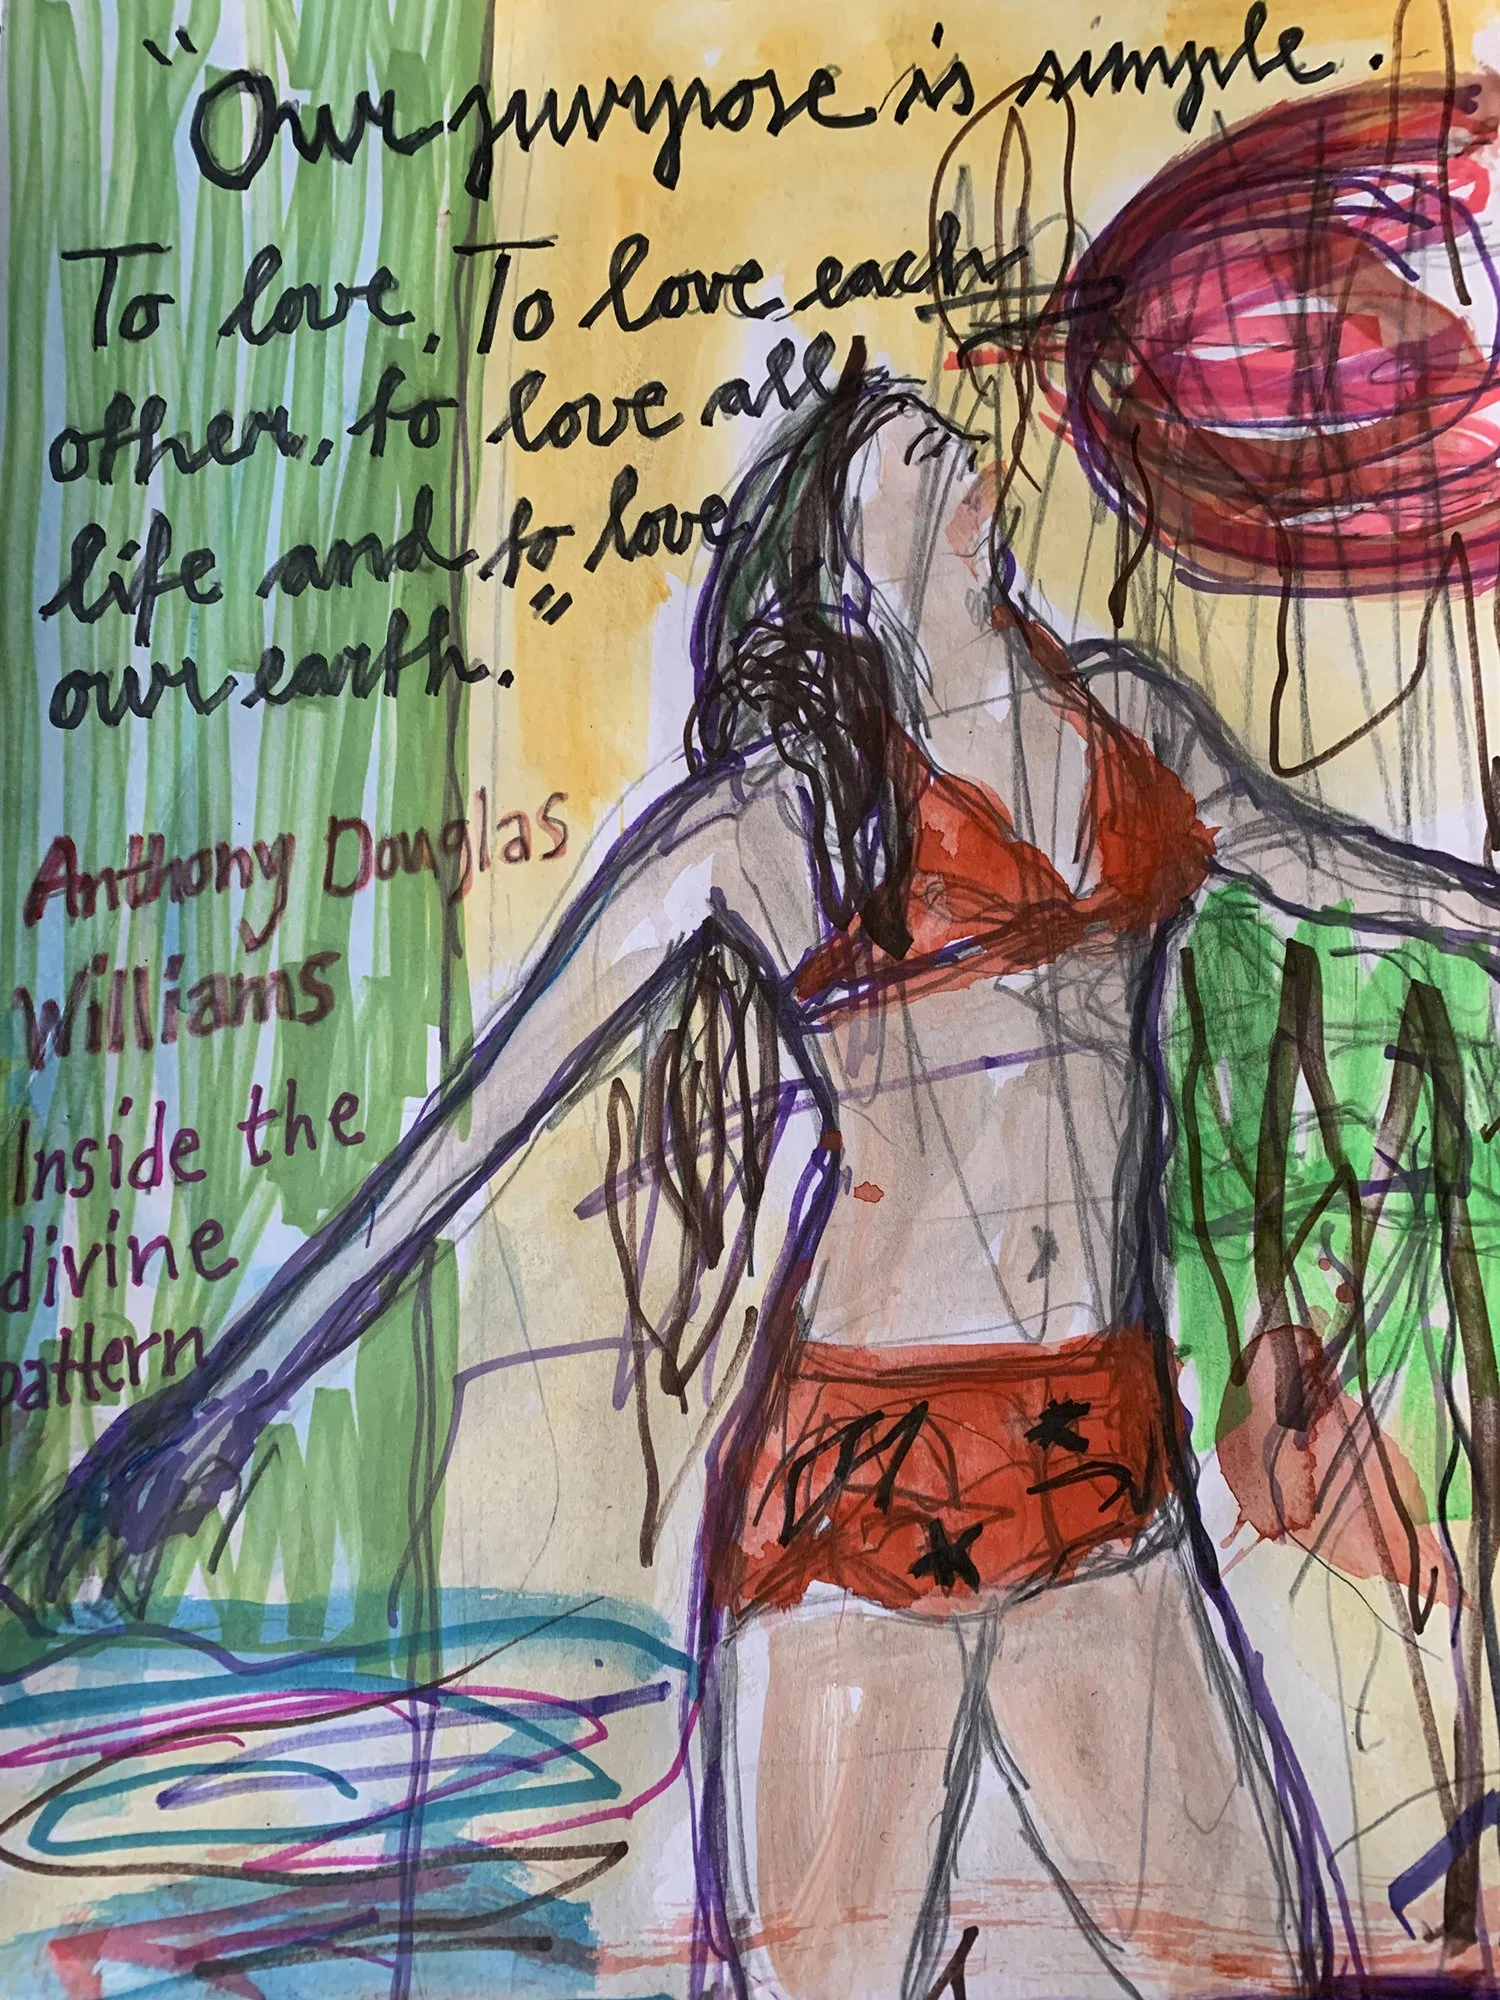 "Our purpose is simple.
To love. To love each
other, to love all
life and to love
our earth."
Anthony Douglas
Williams
Inside the
divine
pattern